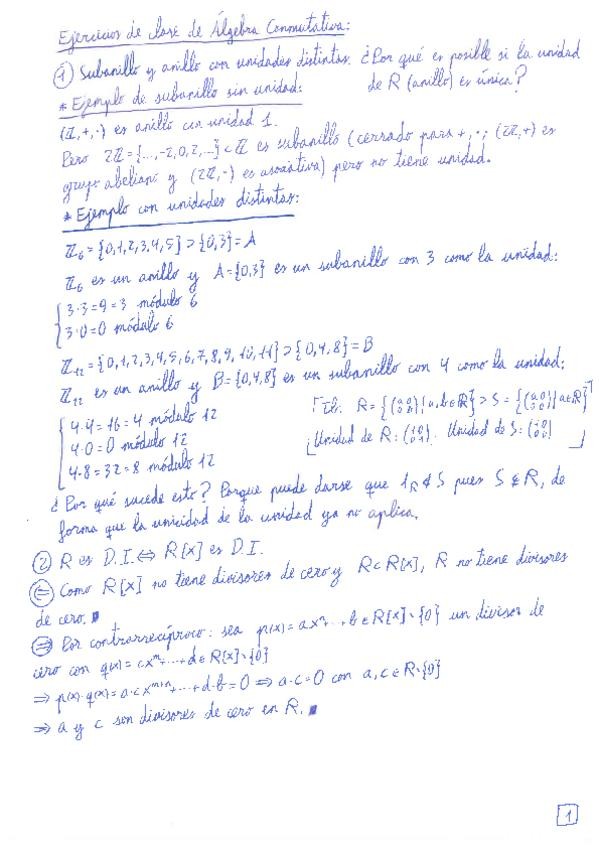 Ejercicios de clase de Álgebra Conmutativa:
① Subanillo y anillo con unidades distintas. ¿Por qué es posible si la unidad
de R (anillo) es única?
* Ejemplo de subanillo sin unidad:
(ℤ,+,·) es anillo con unidad 1.
Pero 2ℤ={...,-2,0,2,...}<ℤ es subanillo (cerrado para +,·; (2ℤ,+) es
grupo abeliano y (2ℤ,·) es asociativa) pero no tiene unidad.
* Ejemplo con unidades distintas:
ℤ₆={0,1,2,3,4,5}>{0,3}=A
ℤ₆ es un anillo y A={0,3} es un subanillo con 3 como la unidad:
3·3=9=3 módulo 6
3·0=0 módulo 6
ℤ₁₂={0,1,2,3,4,5,6,7,8,9,10,11}>{0,4,8}=B
ℤ₁₂ es un anillo y B={0,4,8} es un subanillo con 4 como la unidad:
4·4=16=4 módulo 12
4·0=0 módulo 12
4·8=32=8 módulo 12
R={(a 0 / 0 b)|a,b∈ℝ}>S={(a 0 / 0 0)|a∈ℝ}
Unidad de R:(1 0 / 0 1). Unidad de S:(1 0 / 0 0)
¿Por qué sucede esto? Porque puede darse que 1_R∉S pues S⊊R, de
forma que la unicidad de la unidad ya no aplica.
② R es D.I.⇔R[x] es D.I.
⇐ Como R[x] no tiene divisores de cero y R⊂R[x], R no tiene divisores
de cero.■
⇒ Por contrarrecíproco: sea p(x)=axⁿ+...+b∈R[x]∖{0} un divisor de
cero con q(x)=cxᵐ+...+d∈R[x]∖{0}
⇒p(x)·q(x)=a·cxᵐ⁺ⁿ+...+d·b=0⇒a·c=0 con a,c∈R∖{0}
⇒a y c son divisores de cero en R.■
1